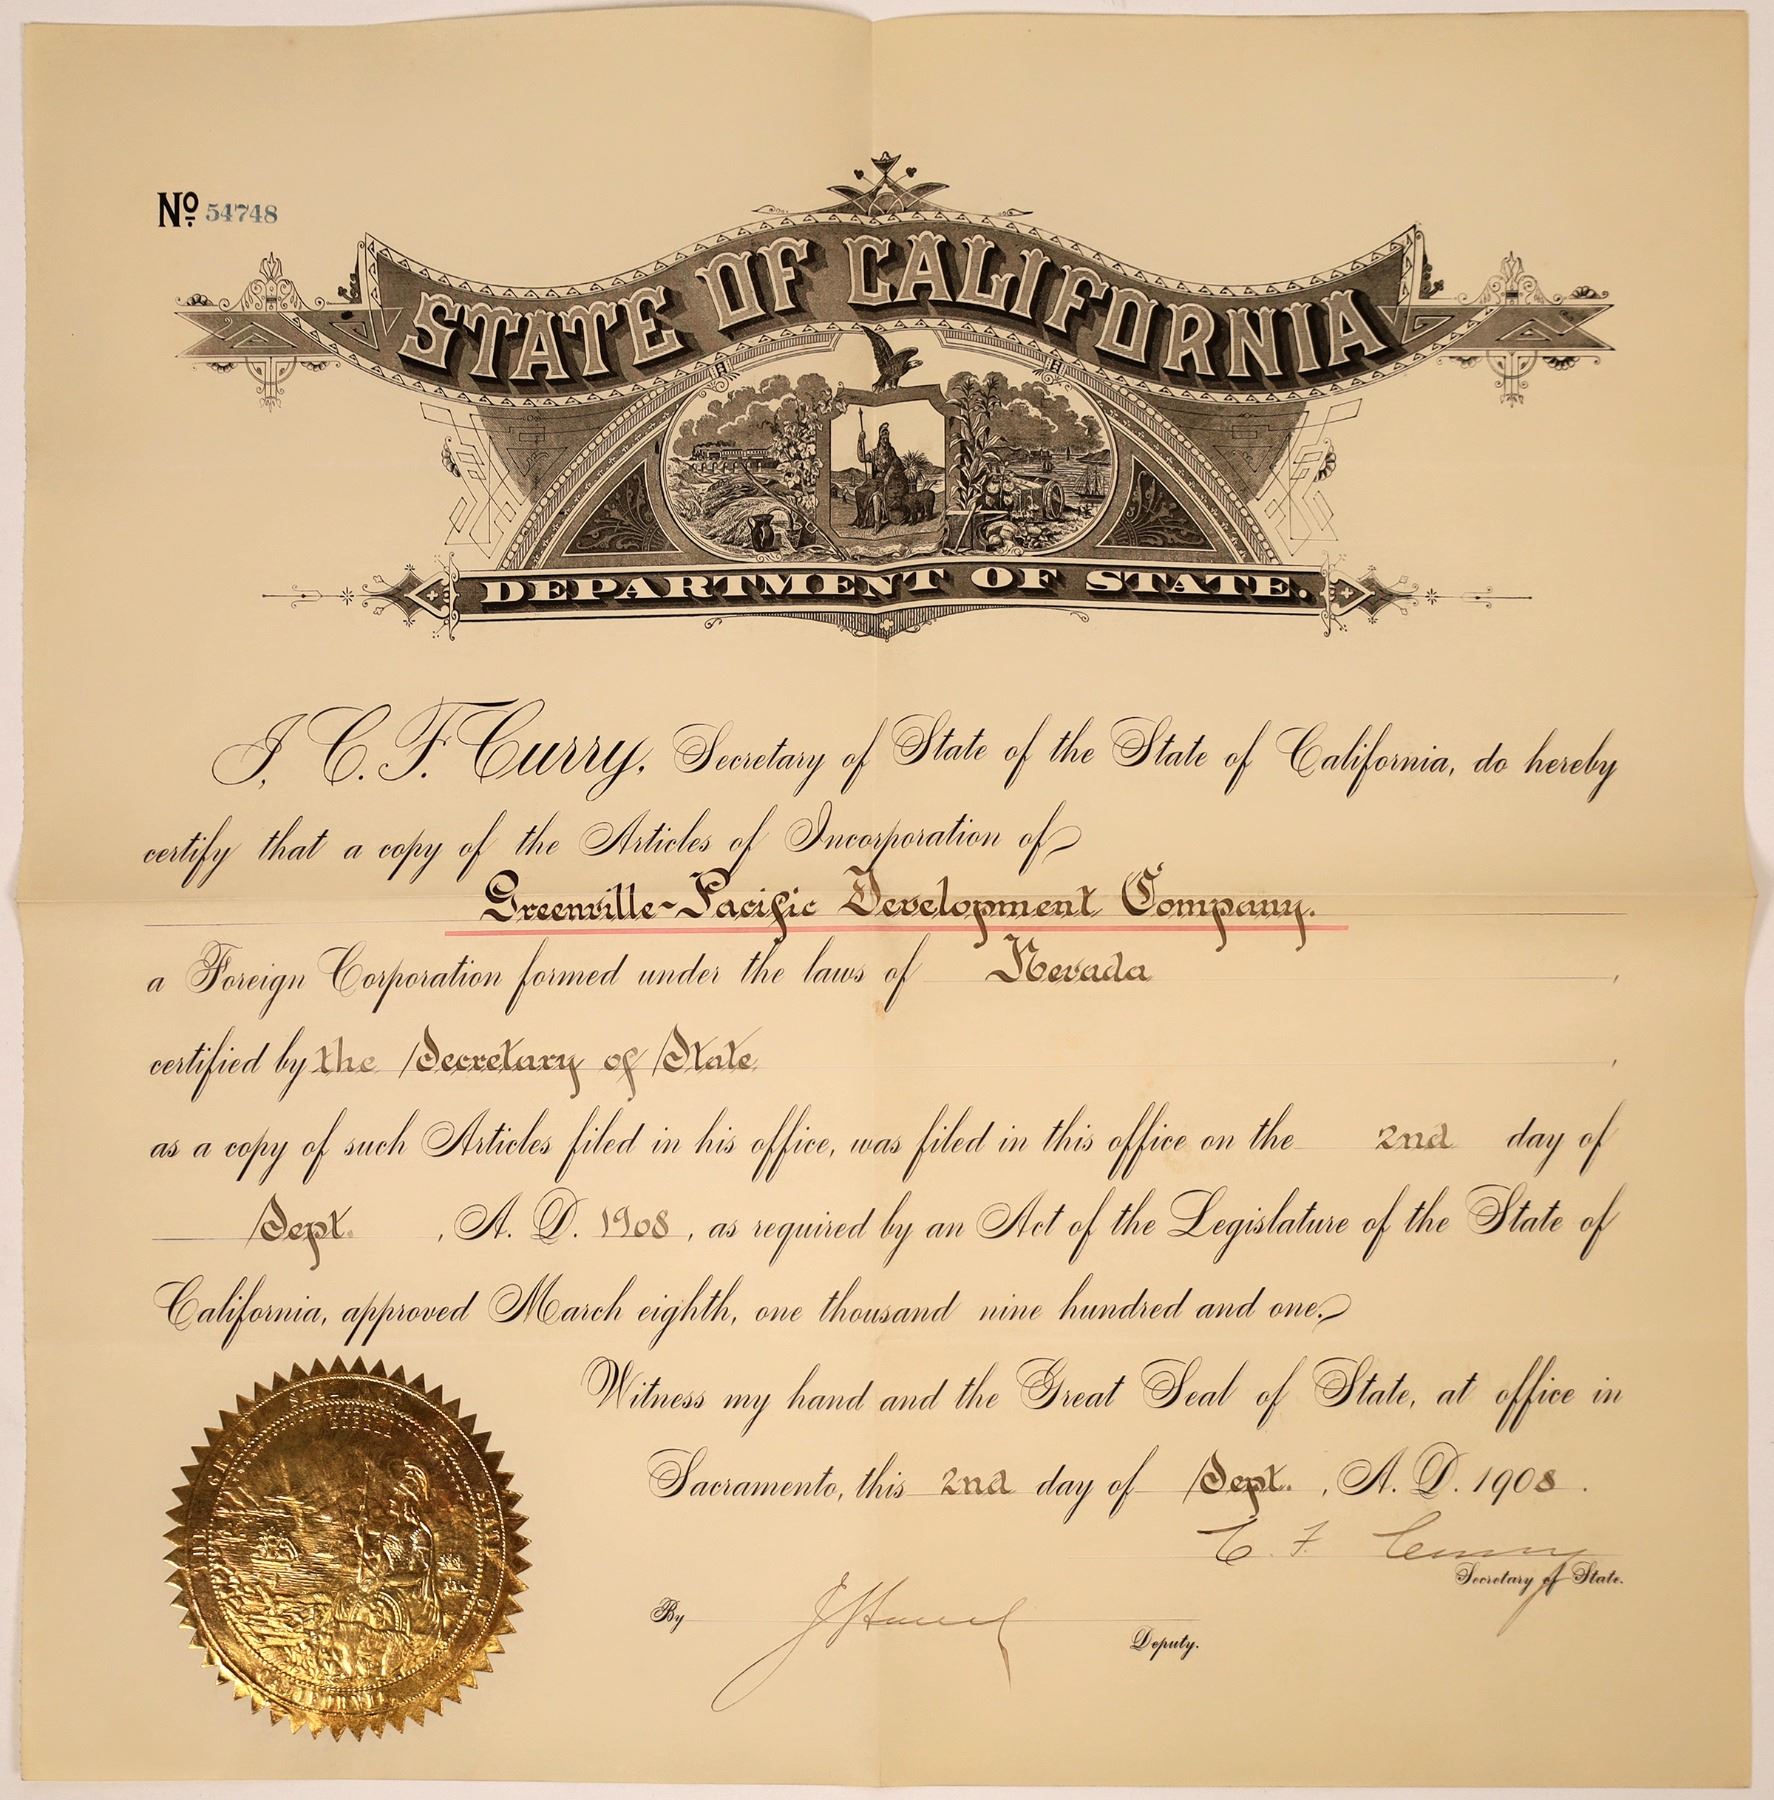 No 54748
STATE OF CALIFORNIA
DEPARTMENT OF STATE.
I, C. F. Curry, Secretary of State of the State of California, do hereby
certify that a copy of the Articles of Incorporation of
Greenville-Pacific Development Company.
a Foreign Corporation formed under the laws of Nevada,
certified by the Secretary of State,
as a copy of such Articles filed in his office, was filed in this office on the 2nd day of
Sept., A. D. 1908, as required by an Act of the Legislature of the State of
California, approved March eighth, one thousand nine hundred and one.
Witness my hand and the Great Seal of State, at office in
Sacramento, this 2nd day of Sept., A. D. 1908.
C. F. Curry
Secretary of State.
By
Deputy.